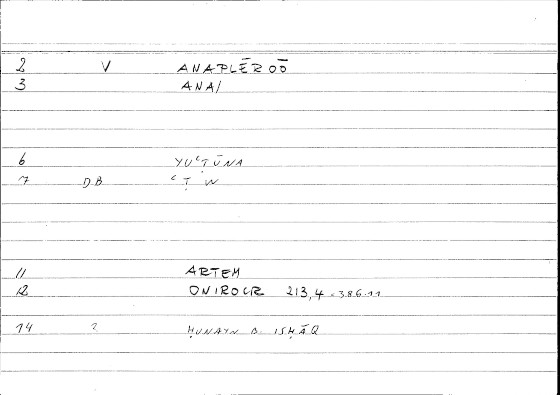 2 V ANAPLĒROŌ
3 ANA/
6 YUʿṬŪNA
7 DB ʿṬW
11 ARTEM
12 ONIROCR 213,4 = 386.11
14 2 ḤUNAYN B. ISḤĀQ